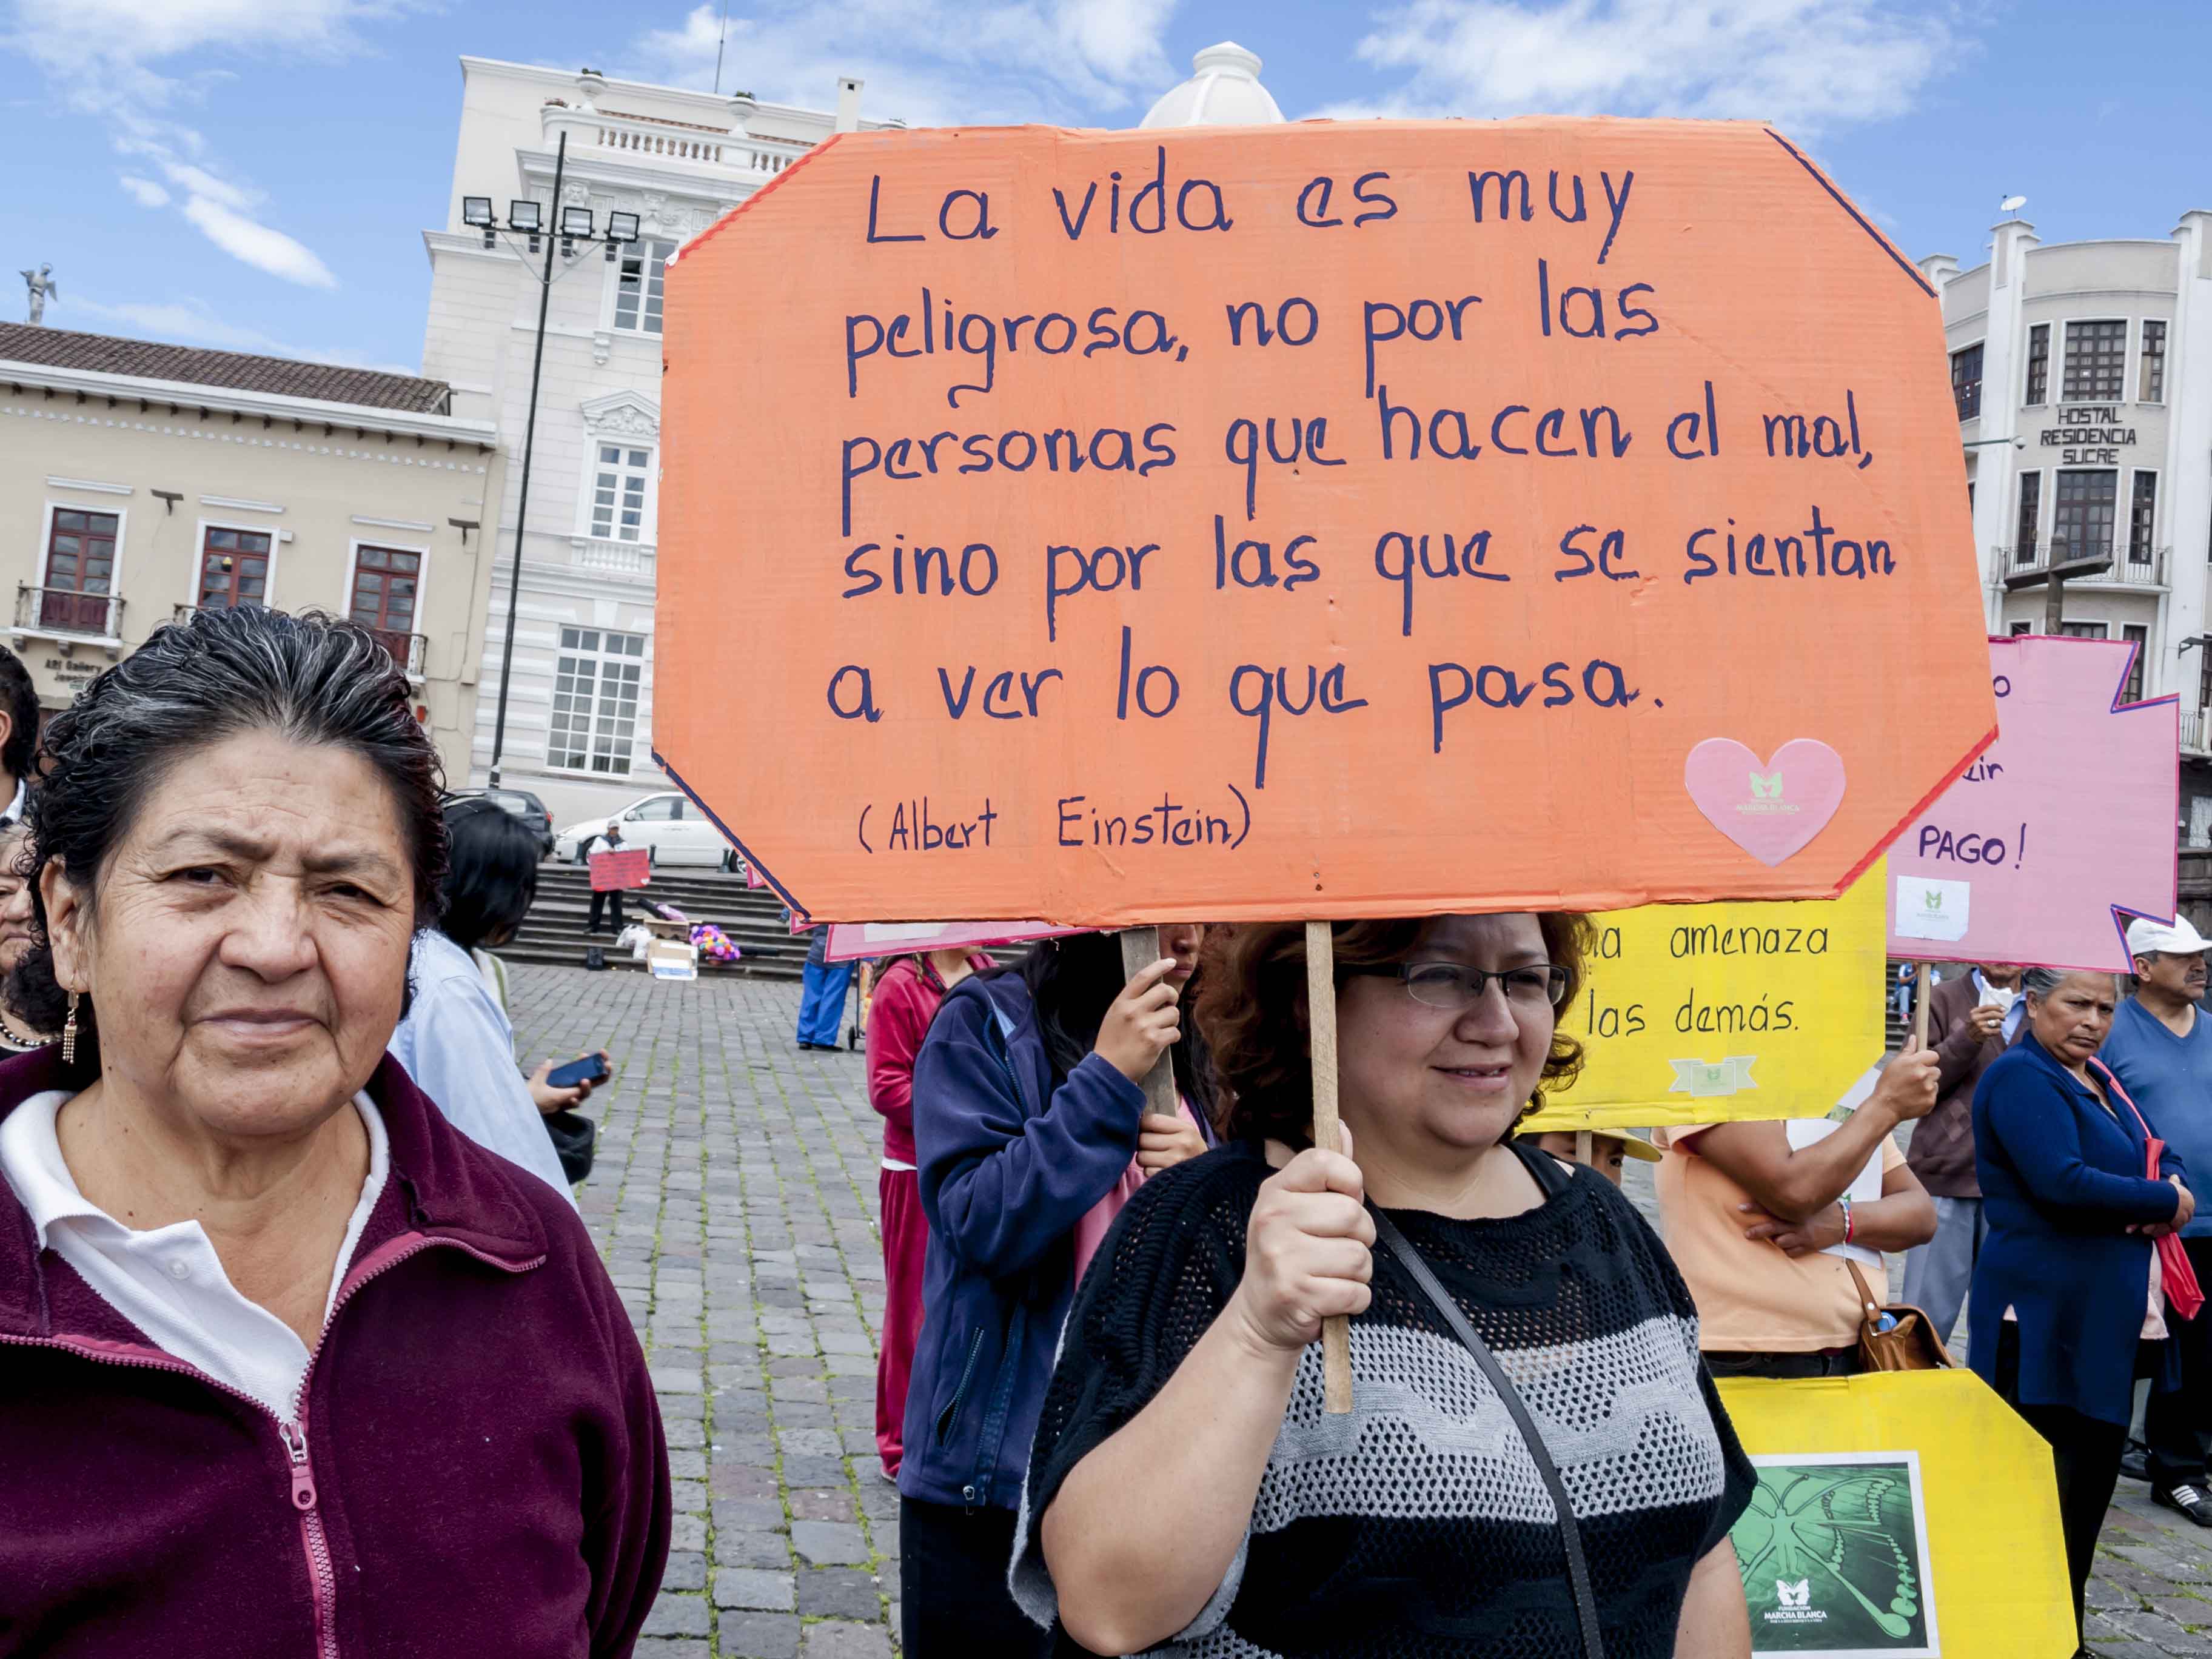 La vida es muy
peligrosa, no por las
personas que hacen el mal,
sino por las que se sientan
a ver lo que pasa.
(Albert Einstein)
MARCHA BLANCA
HOSTAL
RESIDENCIA
SUCRE
PAGO!
amenaza
las demás.
FUNDACIÓN
MARCHA BLANCA
ARI Gallery